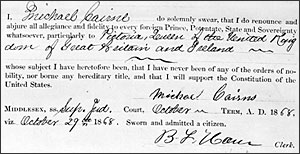 I, Michael Cairns do solemnly swear, that I do renounce and
abjure all allegiance and fidelity to every foreign Prince, Potentate, State and Sovereignty
whatsoever, particularly to Victoria, Queen of the United King
dom of Great Britain and Ireland
whose subject I have heretofore been, that I have never been of any of the orders of no-
bility, nor borne any hereditary title, and that I will support the Constitution of the
United States.
Michael Cairns
MIDDLESEX, ss. Sup. Jud. Court, October TERM, A. D. 1868.
viz. October 29th 1868. Sworn and admitted a citizen,
Clerk.